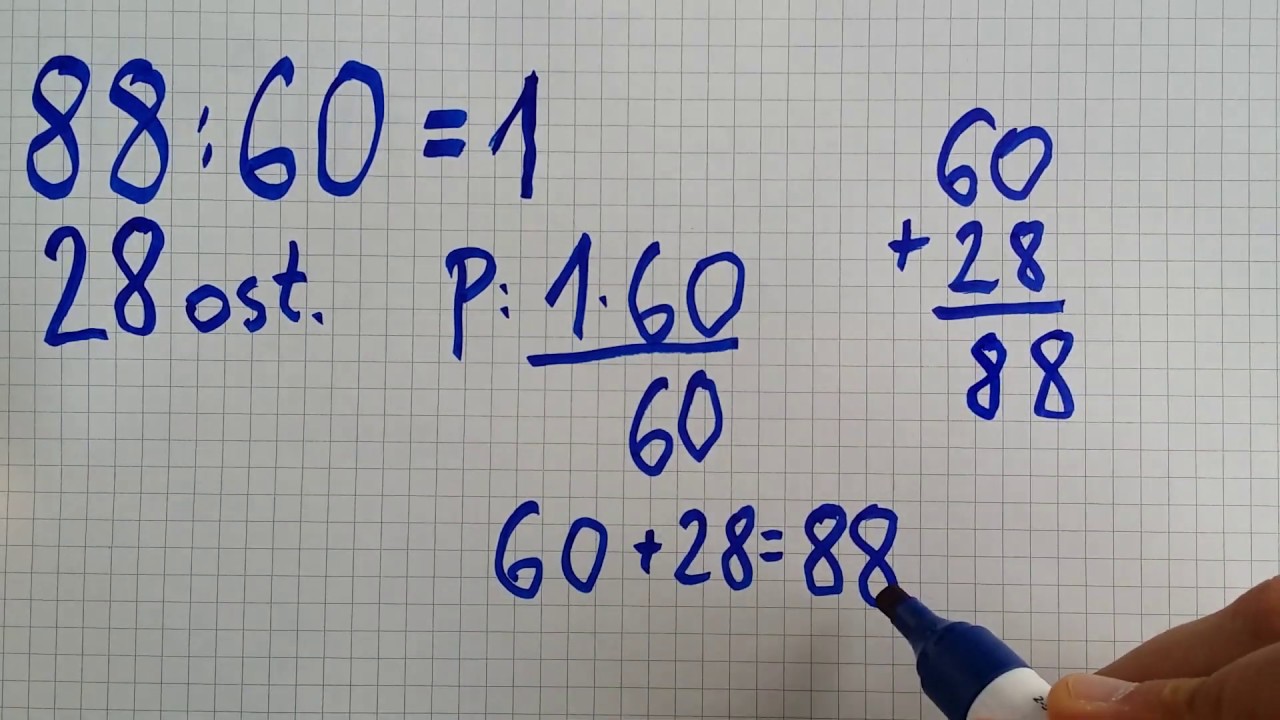 88:60=1
28 ost.
P: 1·60
60
60+28=88
60
+28
88